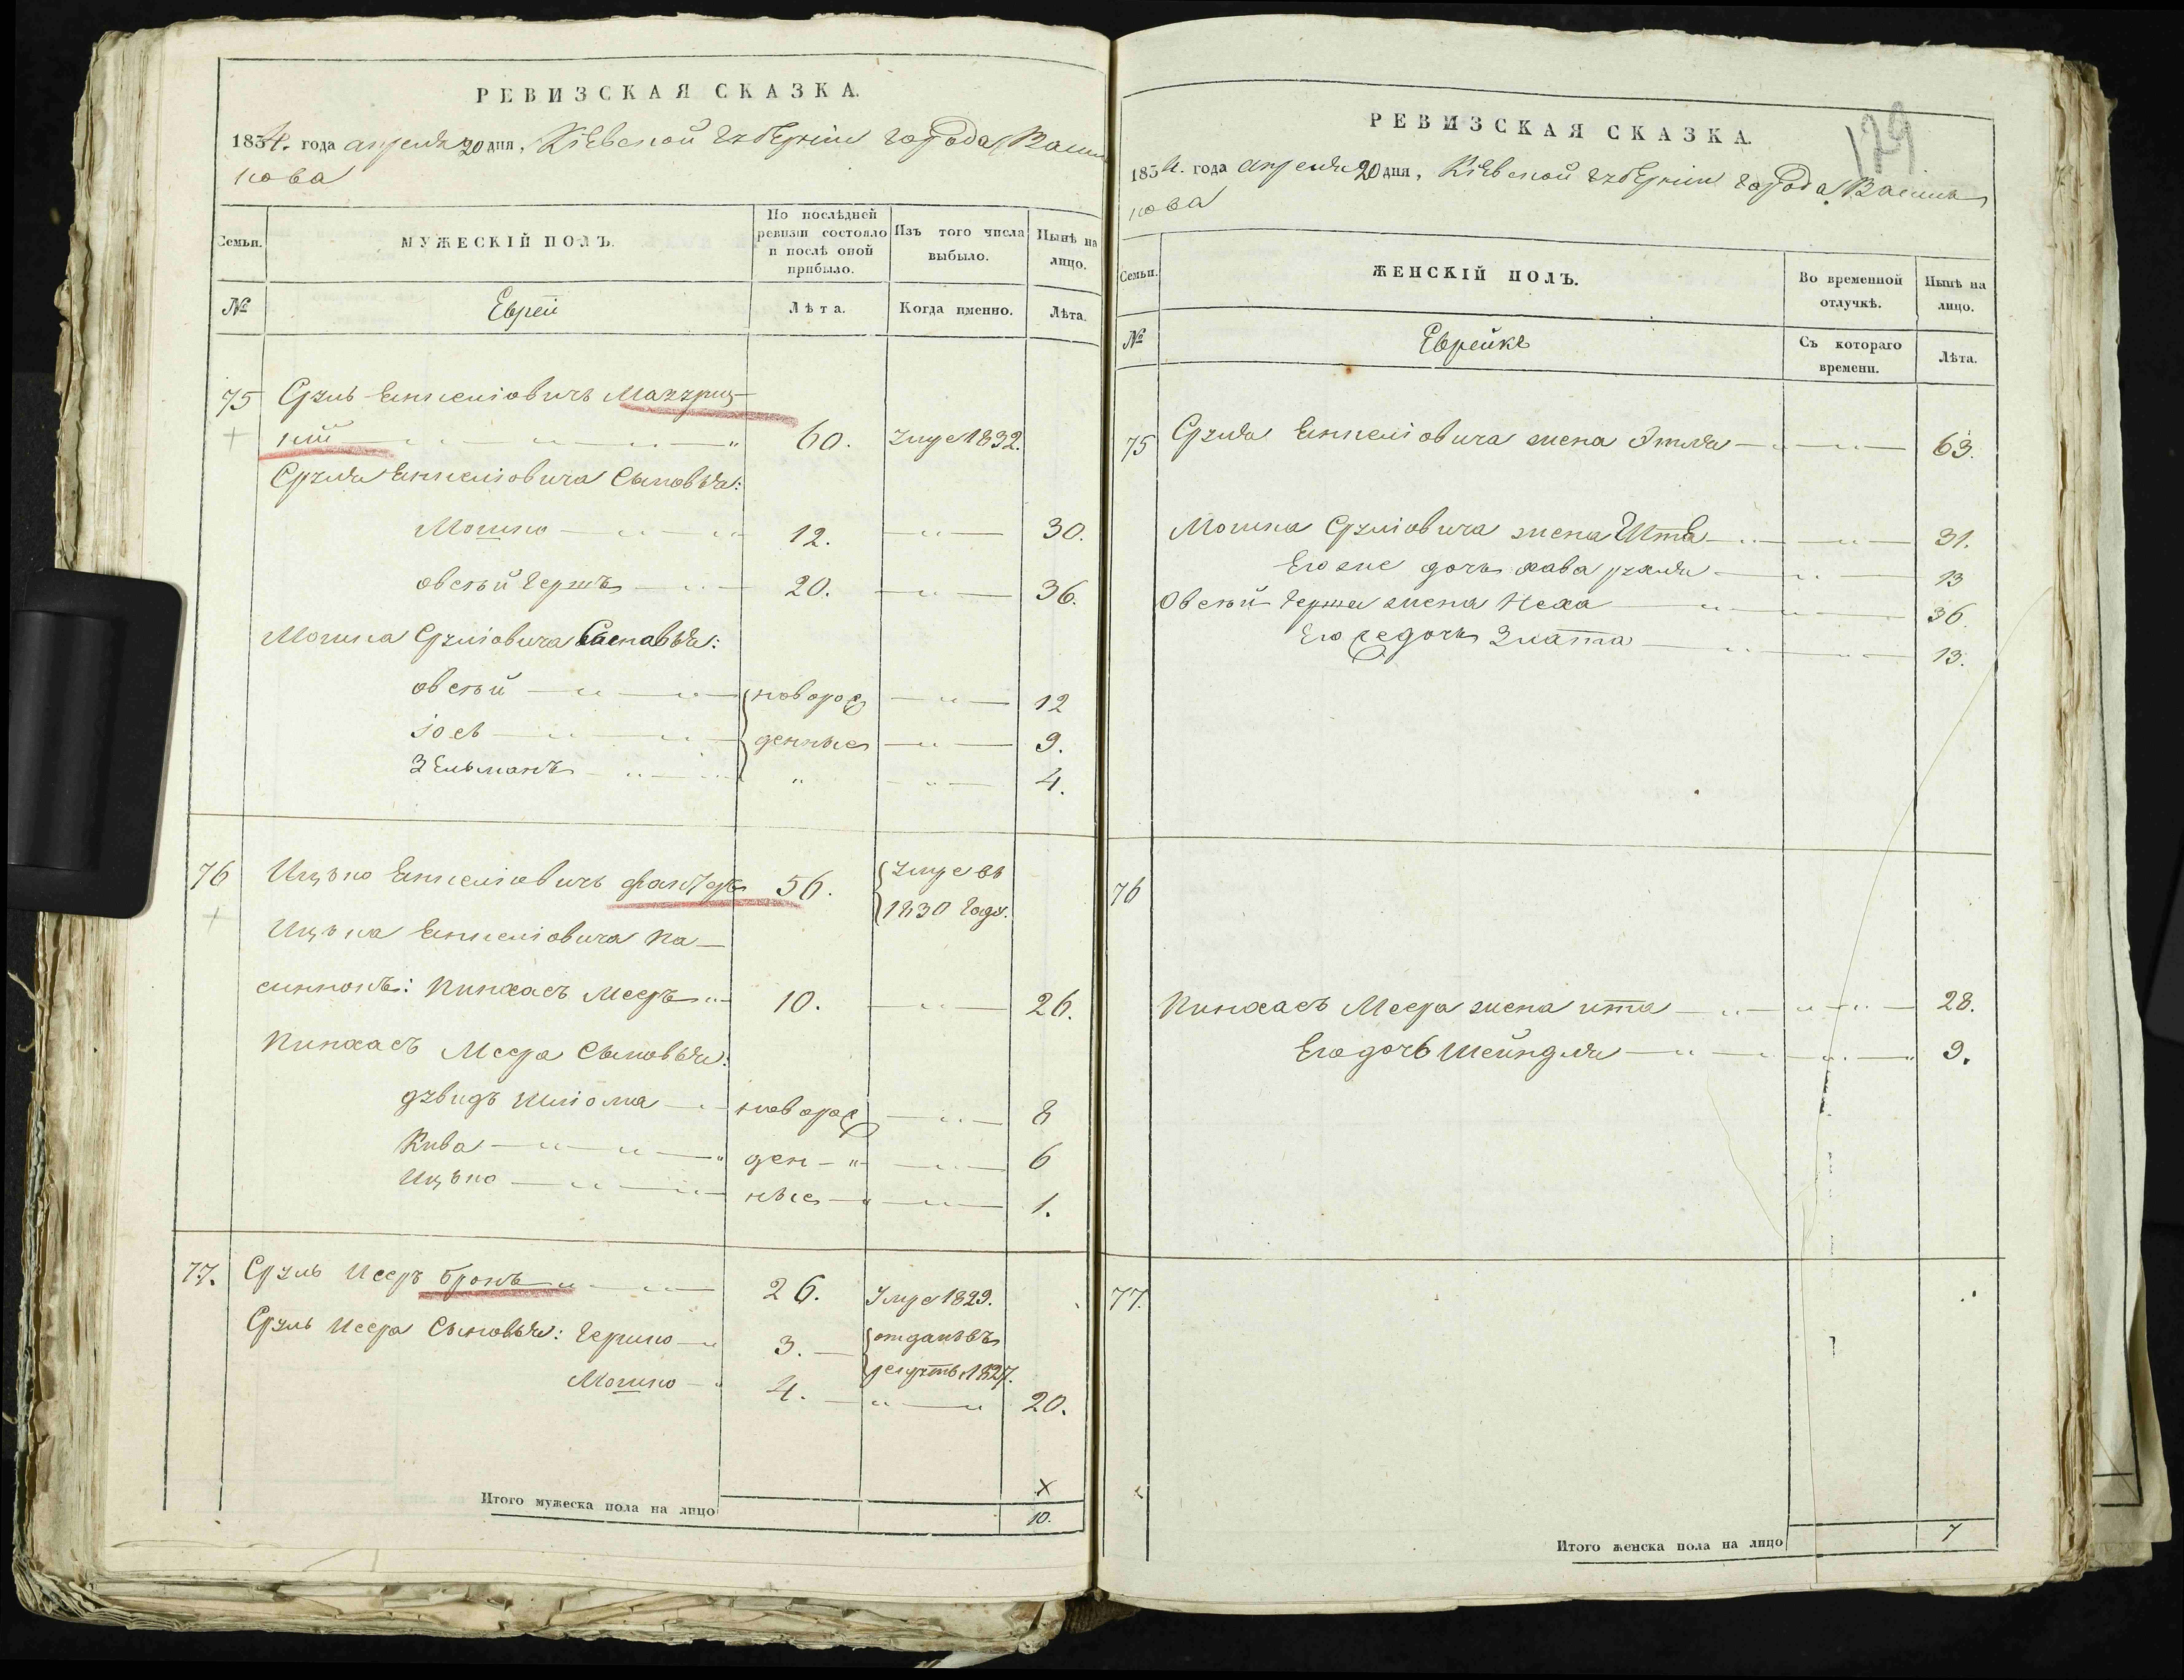 РЕВИЗСКАЯ СКАЗКА.
1834. года апреля 20 дня, Кіевской губерніи города Василь
кова
Семьи.
МУЖЕСКІЙ ПОЛЪ.
По послѣдней ревизіи состояло и послѣ оной прибыло.
Изъ того числа выбыло.
Нынѣ на лицо.
№
Евреи
Лѣта.
Когда именно.
Лѣта.
75 Сруль Енкелiовичъ
кий 60. Умре 1832.
Сруля Енкелiовича Сыновья:
Мошко 12. 30.
овсѣй Гершъ 20. 36.
Мошка Срулiовича Сыновья:
овсѣй новорож 12
іось денные 9.
Зельманъ 4.
76 Ицъко Енкелiовичъ 56. Умре въ
1830 году.
Ицъка Енкелiовича па
сынокъ: Пинхасъ Мееръ 10. 26.
Пинхасъ Меера Сыновья:
Дувидъ Шлiома новорож 8
Кива ден 6
Ицъко ные 1.
77. Сруль Исеръ бронъ 26. Умре 1829.
Сруль Исера Сыновья: Гершко 3. отданъ въ
рекруты 1827.
Мошко 4. 20.
Х
Итого мужеска пола на лицо 10.
РЕВИЗСКАЯ СКАЗКА.
179
1834. года апреля 20 дня, Кіевской губерніи города Василь
кова
Семьи.
ЖЕНСКІЙ ПОЛЪ.
Во временной отлучкѣ.
Нынѣ на лицо.
№
Еврейки
Съ котораго времени.
Лѣта.
75 Сруля Енкелiовича жена Этля 63.
Мошка Срулiовича жена Ита 31.
Его же дочь хава рухля 13
Овсѣй Герша жена Неха 36.
Его же дочь Злата 13.
76
Пинхасъ Меера жена ита 28.
Его дочь Шейндля 9.
77.
Итого женска пола на лицо 7